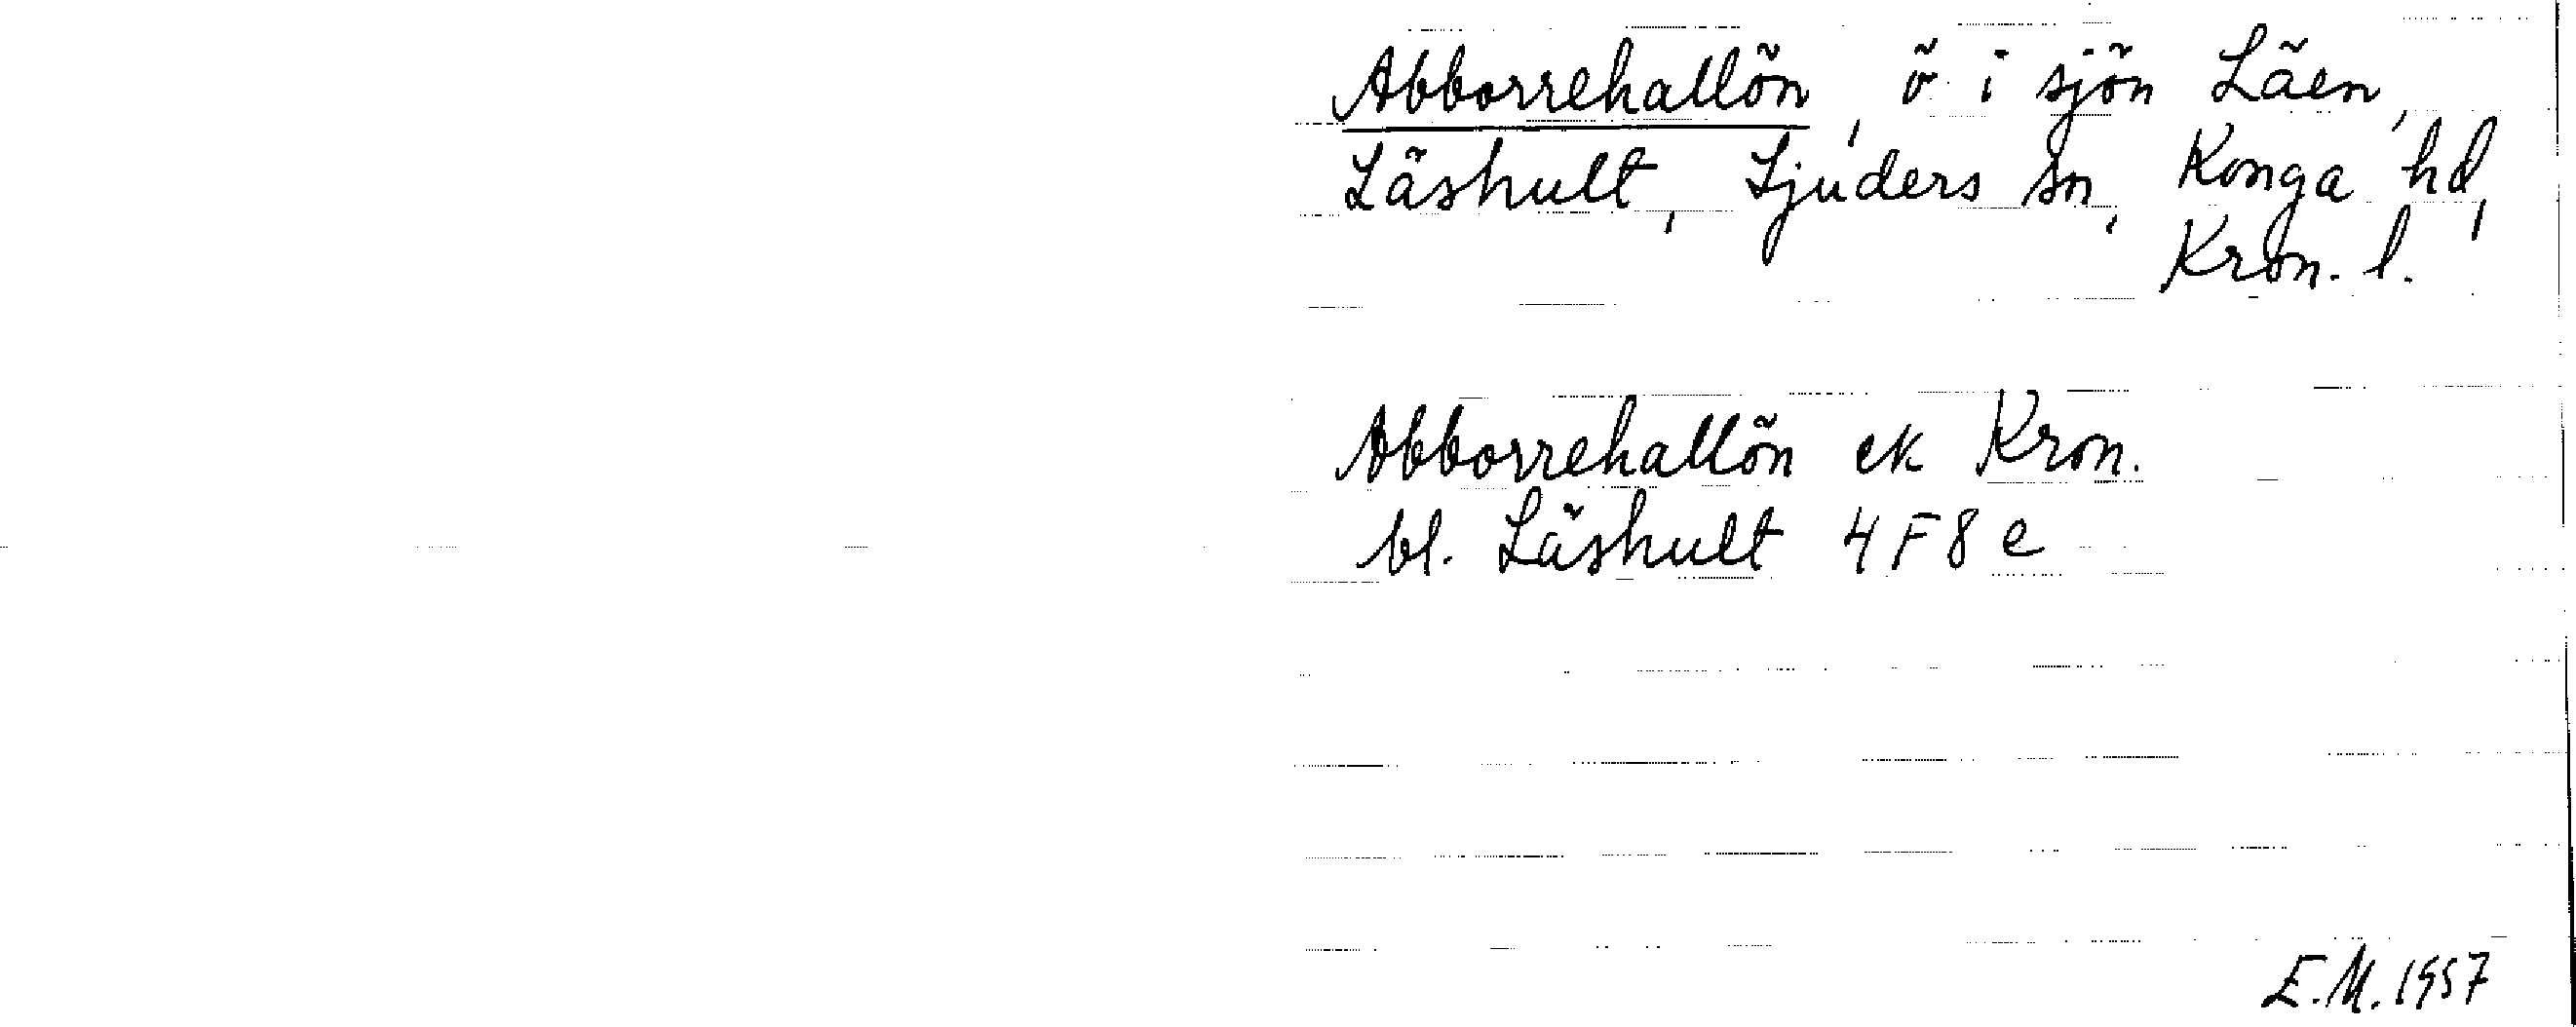 Abborrehallön, ö i sjön Läen,
Läshult, Ljuders sn, Konga hd,
Kron. l.
Abborrehallön ek Kron.
bl. Läshult 4F8e
E.M. 1957